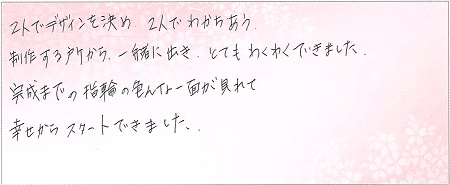 2人でデザインを決め 2人でわかちあう.
制作する所から、一緒に出き、とてもわくわくできました.
完成までの指輪の色んな一面が見れて
幸せからスタートできました、.